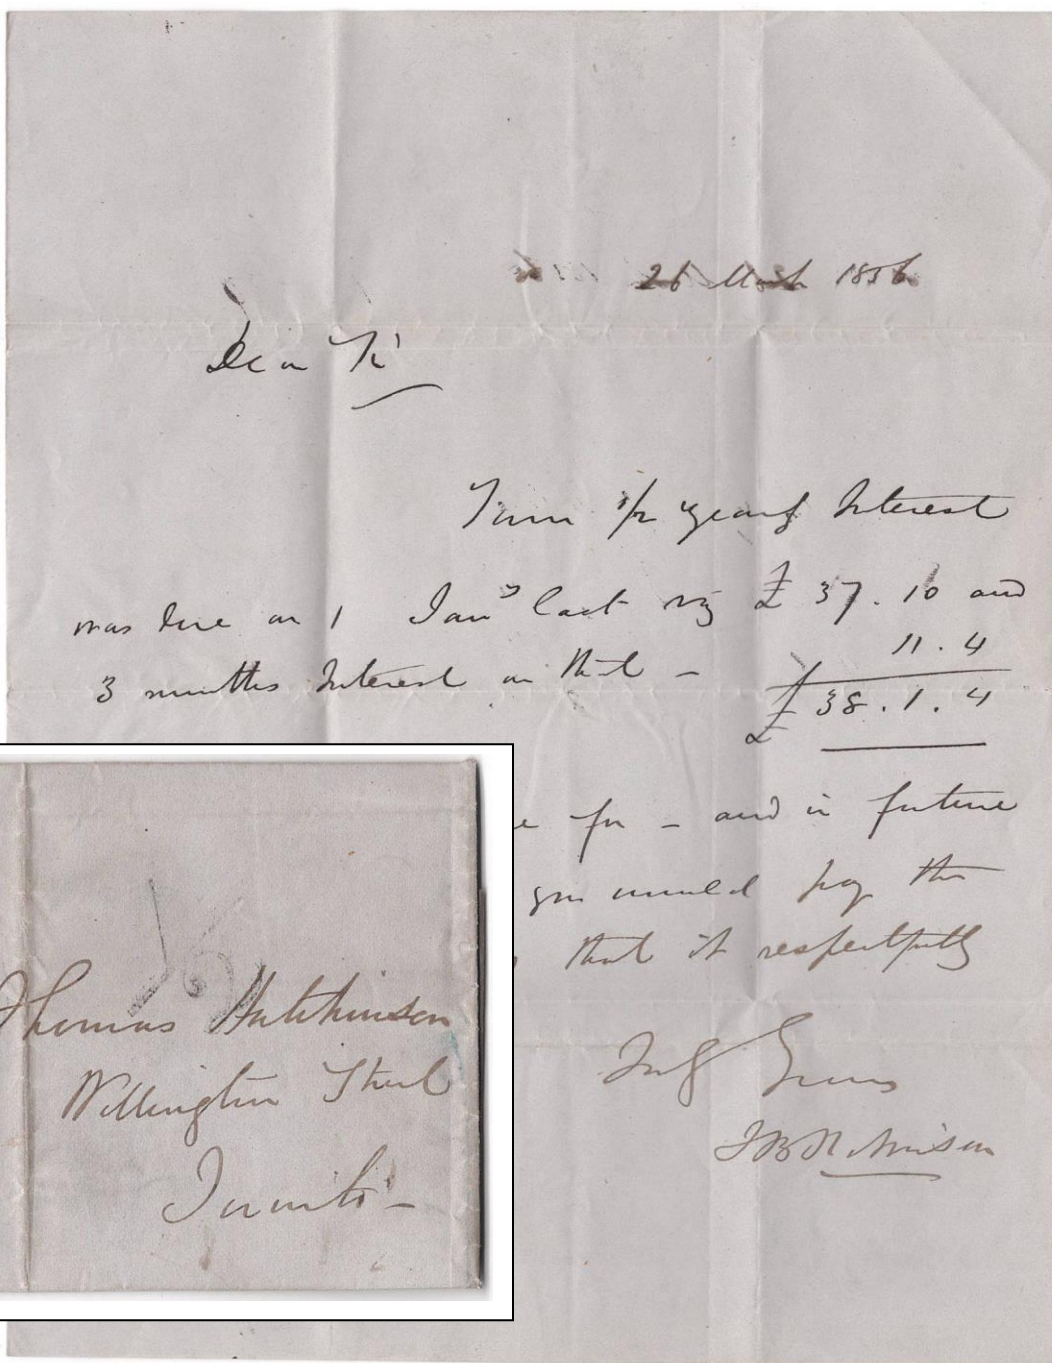 26 March 1856
Dear Sir
Your 1/2 years Interest
was due on 1 Jany last viz £ 37.10 and
11.4
3 months Interest on that —
£ 38.1.4
e for — and in future
you would pay the
that it respectfully
Yrs
J B Robinson
Thomas Hutchinson
Wellington Street
Toronto —